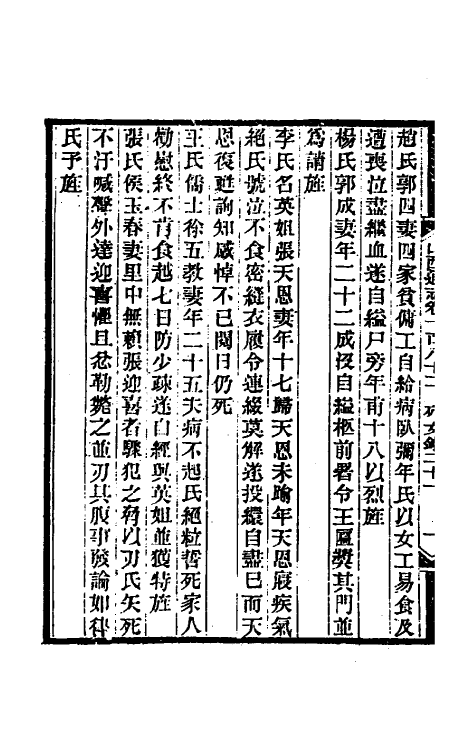 趙氏郭四妻四家貧傭工自給病臥彌年氏以女工易食及
遭喪泣盡繼血遂自縊尸旁年甫十八以烈旌
楊氏郭成妻年二十二成沒自縊柩前署令王匾獎其門並
為請旌
李氏名英姐張天恩妻年十七歸天恩未踰年天恩寢疾氣
絕氏號泣不食密縫衣履令連綴莫解遂投繯自盡已而天
恩復甦詢知感悼不已閱日仍死
王氏儒士徐五教妻年二十五夫病不起氏絕粒誓死家人
勸慰終不肯食越七日防少疎遂自經與英姐並獲特旌
張氏侯玉春妻里中無賴張迎喜者驟犯之脅以刃氏矢死
不汙喊聲外達迎喜懼且忿勒斃之並刃其腹事發論如律
氏予旌
山西通志卷一百八十二 列女錄二十一